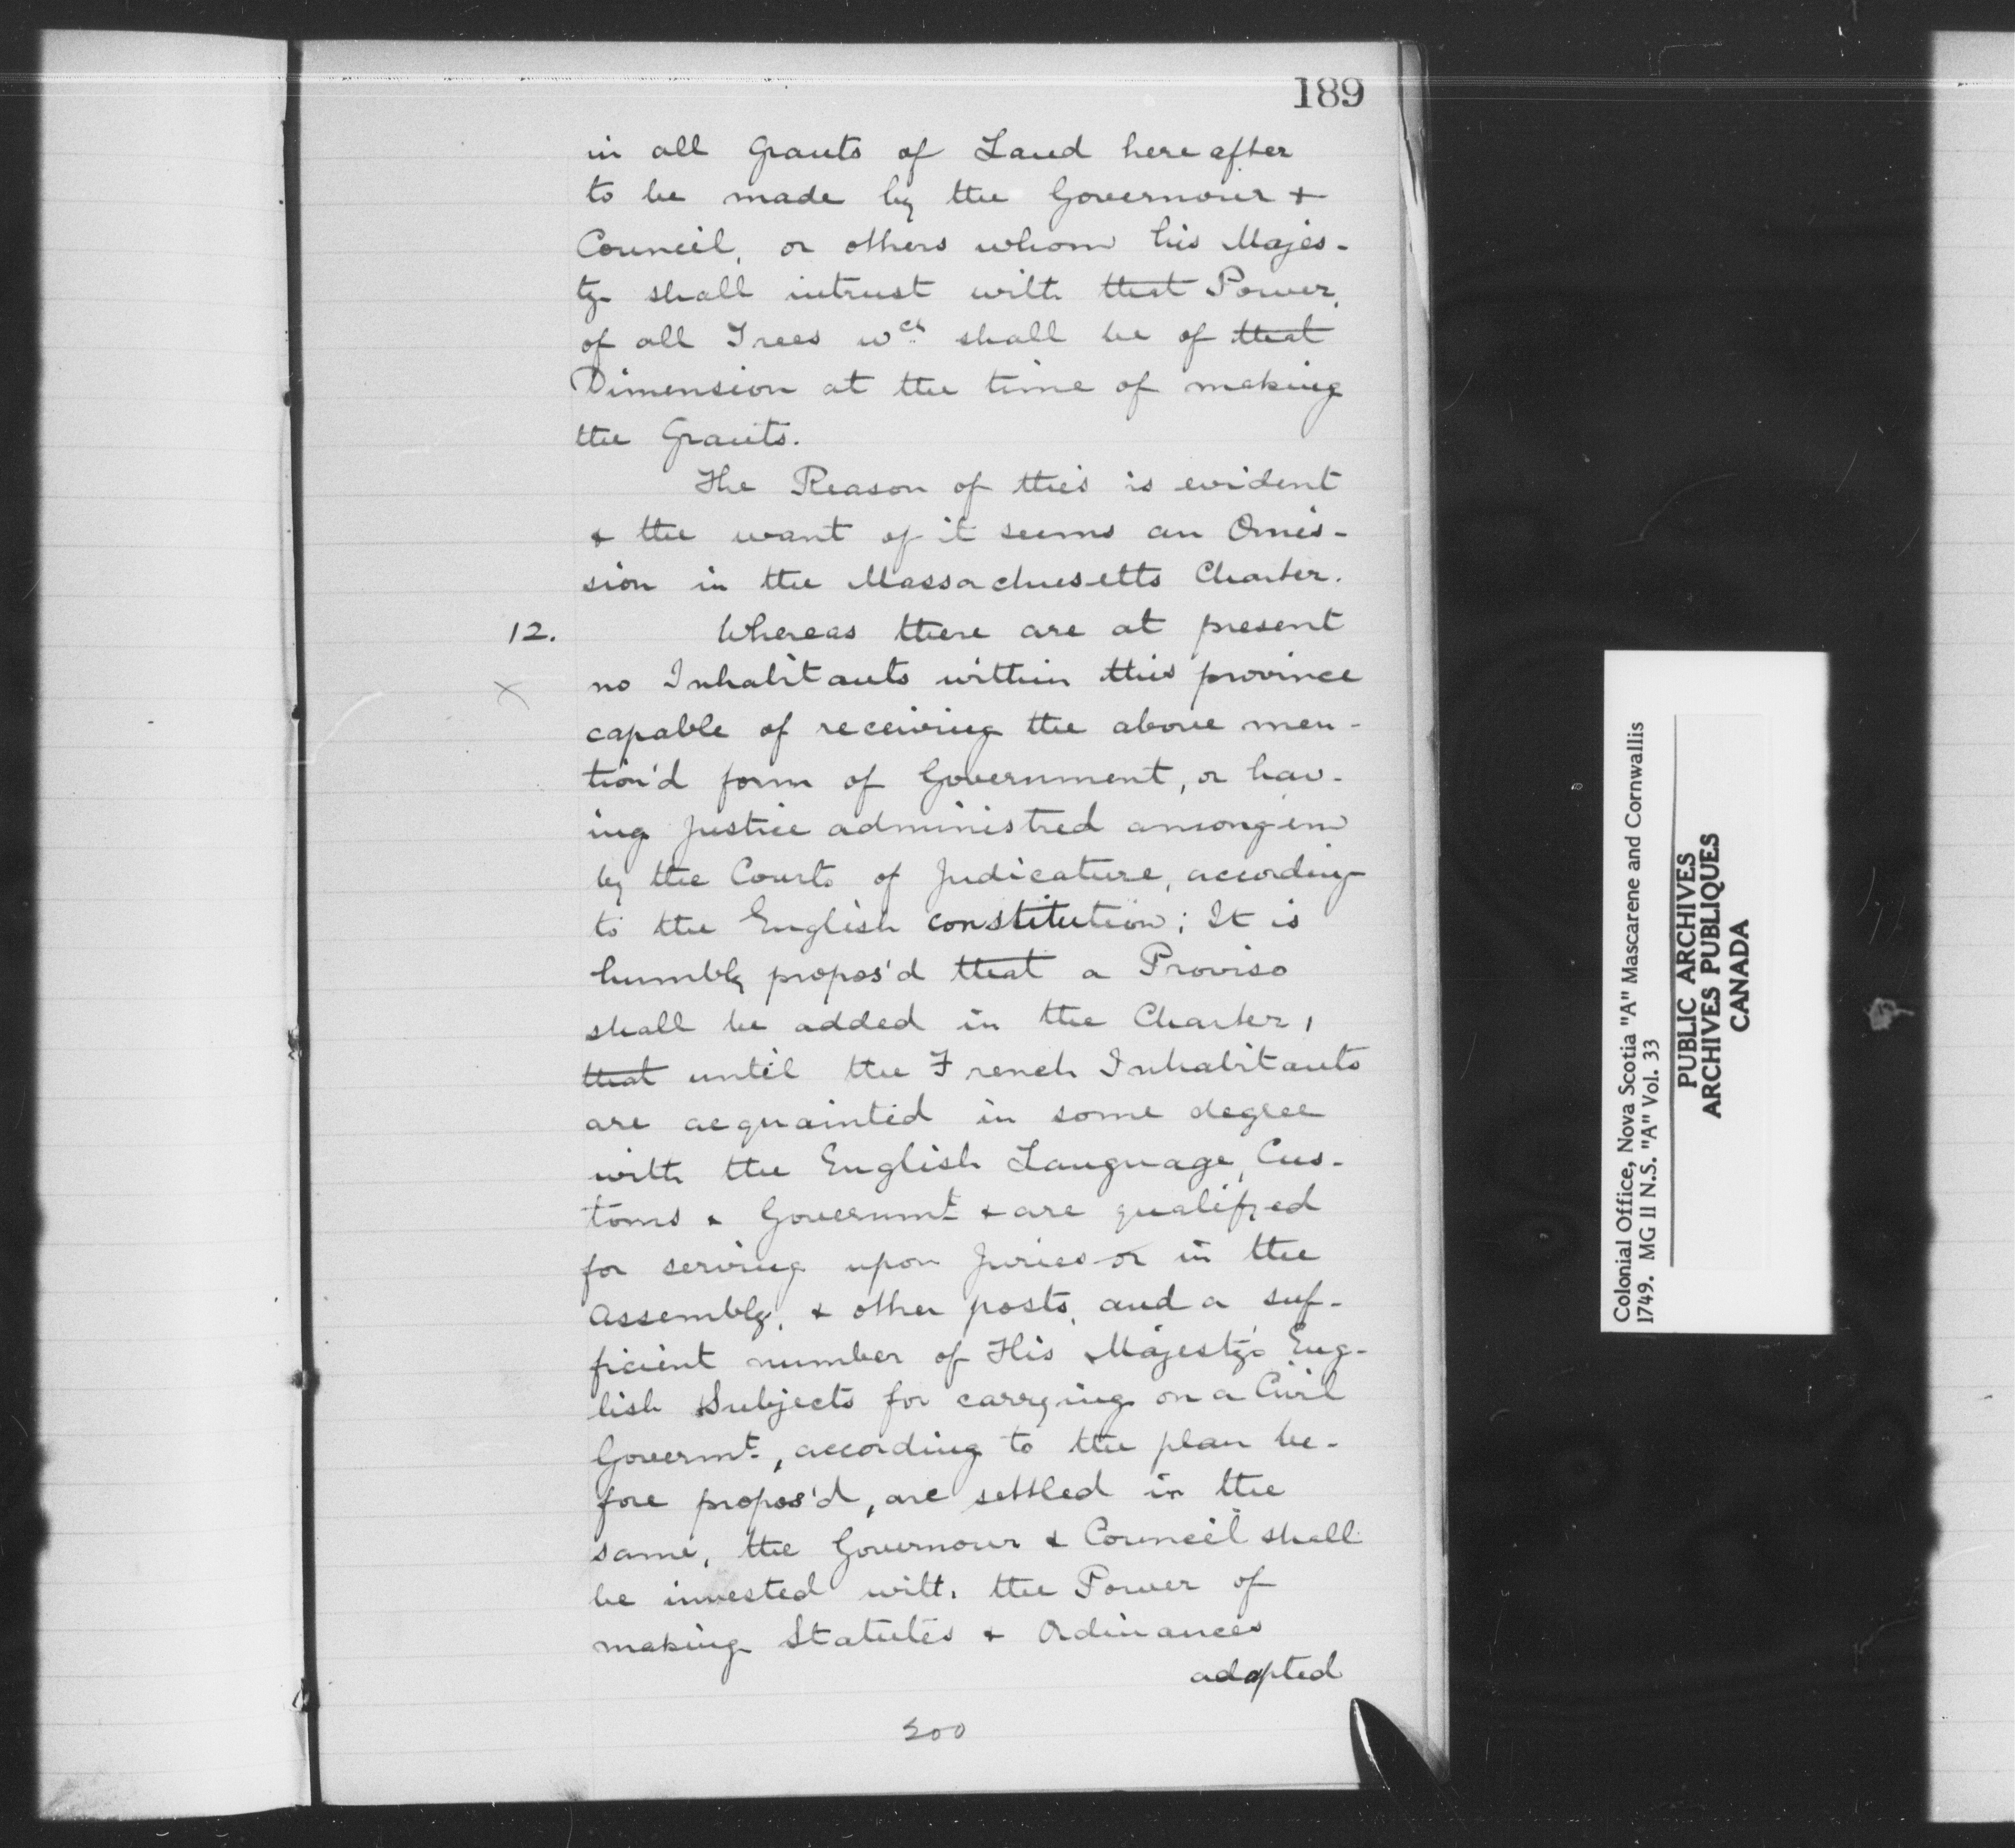 189
in all Grants of Land hereafter
to be made by the Governour &
Council, or others whom his Majes-
ty shall intrust with that Power,
of all Trees wch shall be of that
Dimension at the time of making
the Grants.
The Reason of this is evident
& the want of it seems an Omis-
sion in the Massachusetts Charter.
12. Whereas there are at present
no Inhabitants within this province
capable of receiving the above men-
tion'd form of Government, or hav-
ing Justice administred among em
by the Courts of Judicature, according
to the English constitution; It is
humbly propos'd that a Proviso
shall be added in the Charter,
that until the French Inhabitants
are acquainted in some degree
with the English Language, Cus-
toms & Governmt & are qualifyed
for serving upon Juries or in the
Assembly, & other posts, and a suf-
ficient number of His Majesty's Eng-
lish Subjects for carrying on a Civil
Govermt, according to the plan be-
fore propos'd, are settled in the
same, the Governour & Council shall
be invested with the Power of
making Statutes & Ordinances
adapted
200
Colonial Office, Nova Scotia "A" Mascarene and Cornwallis
1749. MG II N.S. "A" Vol. 33
PUBLIC ARCHIVES
ARCHIVES PUBLIQUES
CANADA